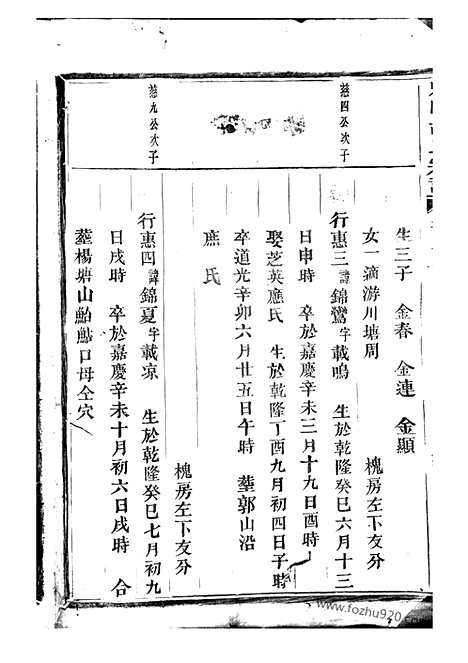 生三子 金春 金連 金顯
女一適游川塘周 槐房左下友分
慈四公次子
行惠三諱錦鸞字載鳴 生於乾隆癸巳六月十三
日申時 卒於嘉慶辛未三月十九日酉時
娶芝英應氏 生於乾隆丁酉九月初四日子時
卒道光辛卯六月廿五日午時 塟郭山沿
應氏
槐房左下友分
慈九公次子
行惠四諱錦夏字載凉 生於乾隆癸巳七月初九
日戌時 卒於嘉慶辛未十月初六日戌時 合
塟楊塘山鮎鯭口母仝穴
www.fozhu920.com